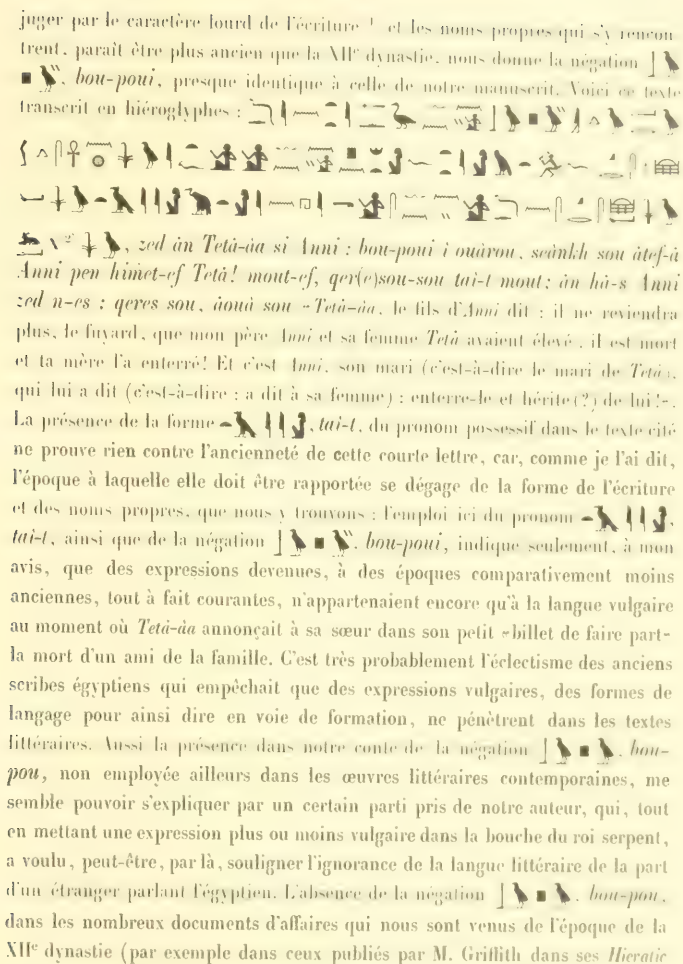 juger par le caractère lourd de l'écriture ¹ et les noms propres qui s'y rencon
trent, paraît être plus ancien que la XIIe dynastie, nous donne la négation
bou-poui, presque identique à celle de notre manuscrit. Voici ce texte
transcrit en hiéroglyphes :
zed àn Tetà-àa si Anni : bou-poui i ouàrou, seànkh sou àtef-à
Anni pen himet-ef Tetà! mout-ef, qer(e)sou-sou tai-t mout; àn hà-s Anni
zed n-es : qeres sou, àouà sou «Tetà-àa, le fils d'Anni dit : il ne reviendra
plus, le fuyard, que mon père Anni et sa femme Tetà avaient élevé, il est mort
et ta mère l'a enterré! Et c'est Anni, son mari (c'est-à-dire le mari de Tetà),
qui lui a dit (c'est-à-dire : a dit à sa femme) : enterre-le et hérite(?) de lui!».
La présence de la forme , tai-t, du pronom possessif dans le texte cité
ne prouve rien contre l'ancienneté de cette courte lettre, car, comme je l'ai dit,
l'époque à laquelle elle doit être rapportée se dégage de la forme de l'écriture
et des noms propres, que nous y trouvons : l'emploi ici du pronom ,
tai-t, ainsi que de la négation , bou-poui, indique seulement, à mon
avis, que des expressions devenues, à des époques comparativement moins
anciennes, tout à fait courantes, n'appartenaient encore qu'à la langue vulgaire
au moment où Tetà-àa annonçait à sa sœur dans son petit «billet de faire part»
la mort d'un ami de la famille. C'est très probablement l'éclectisme des anciens
scribes égyptiens qui empêchait que des expressions vulgaires, des formes de
langage pour ainsi dire en voie de formation, ne pénètrent dans les textes
littéraires. Aussi la présence dans notre conte de la négation , bou-
pou, non employée ailleurs dans les œuvres littéraires contemporaines, me
semble pouvoir s'expliquer par un certain parti pris de notre auteur, qui, tout
en mettant une expression plus ou moins vulgaire dans la bouche du roi serpent,
a voulu, peut-être, par là, souligner l'ignorance de la langue littéraire de la part
d'un étranger parlant l'égyptien. L'absence de la négation , bou-pou,
dans les nombreux documents d'affaires qui nous sont venus de l'époque de la
XIIe dynastie (par exemple dans ceux publiés par M. Griffith dans ses Hieratic